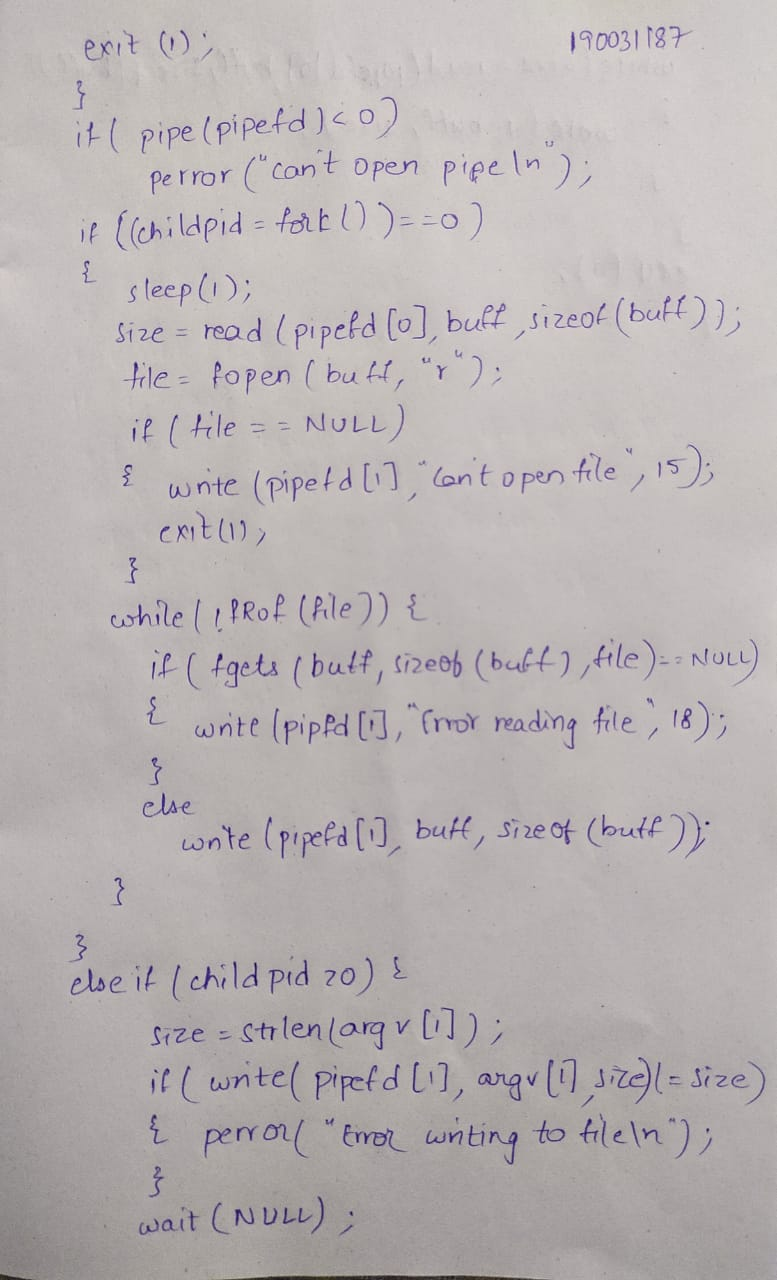 exit (1);
190031187
}
if( pipe(pipefd)<0)
perror("can't open pipe\n");
if ((childpid = fork())==0)
{
sleep(1);
size = read (pipefd[0], buff, sizeof(buff));
file = fopen (buff, "r");
if (file == NULL)
{ write (pipefd[1], "Can't open file", 15);
exit(1);
}
while (! (file)) {
if ( fgets (buff, sizeof (buff), file)== NULL)
{ write (pipfd[1], "Error reading file", 18);
}
else
write (pipefd[1], buff, sizeof (buff));
}
}
else if (childpid >0) {
size = strlen(argv[1]);
if ( write( pipefd[1], argv[1], size)!= size)
{ perror( "Error writing to file\n");
}
wait (NULL);